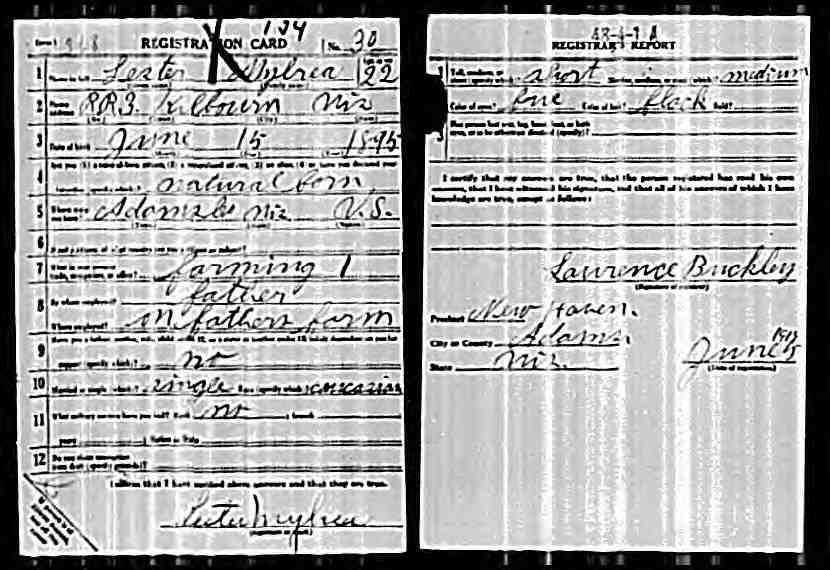 134
Form 1 REGISTRATION CARD No. 30
1 Name in full Lester Mylrea Age in yrs 22
2 Home address R.R.3. Kilbourn Wis
3 Date of birth June 15 1895
4 Are you (1) a natural-born citizen, (2) a naturalized citizen, (3) an alien, (4) or have you declared your
intention (specify which)? natural born
5 Where were you born? Adams Co Wis U.S.
6 If not a citizen, of what country are you a citizen or subject?
7 What is your present trade, occupation, or office? farming 1
8 By whom employed? father
Where employed? on fathers farm
9 Have you a father, mother, wife, child under 12, or a sister or brother under 12, solely dependent on you for
support (specify which)? no
10 Married or single (which)? single Race (specify which)? caucasian
11 What military service have you had? Rank no ; branch
years ; Nation or State
12 Do you claim exemption from draft (specify grounds)?
I affirm that I have verified above answers and that they are true.
Lester Mylrea
(Signature or mark)
48-4-1 A
REGISTRAR'S REPORT
1 Tall, medium, or short (specify which)? short Slender, medium, or stout (which)? medium
Color of eyes? blue Color of hair? black Bald?
3 Has person lost arm, leg, hand, foot, or both
eyes, or is he otherwise disabled (specify)?
I certify that my answers are true, that the person registered has read his own
answers, that I have witnessed his signature, and that all of his answers of which I have
knowledge are true, except as follows:
Lawrence Buckley
(Signature of registrar)
Precinct New Haven.
City or County Adams.
State Wis.
June 5 1917
(Date of registration)